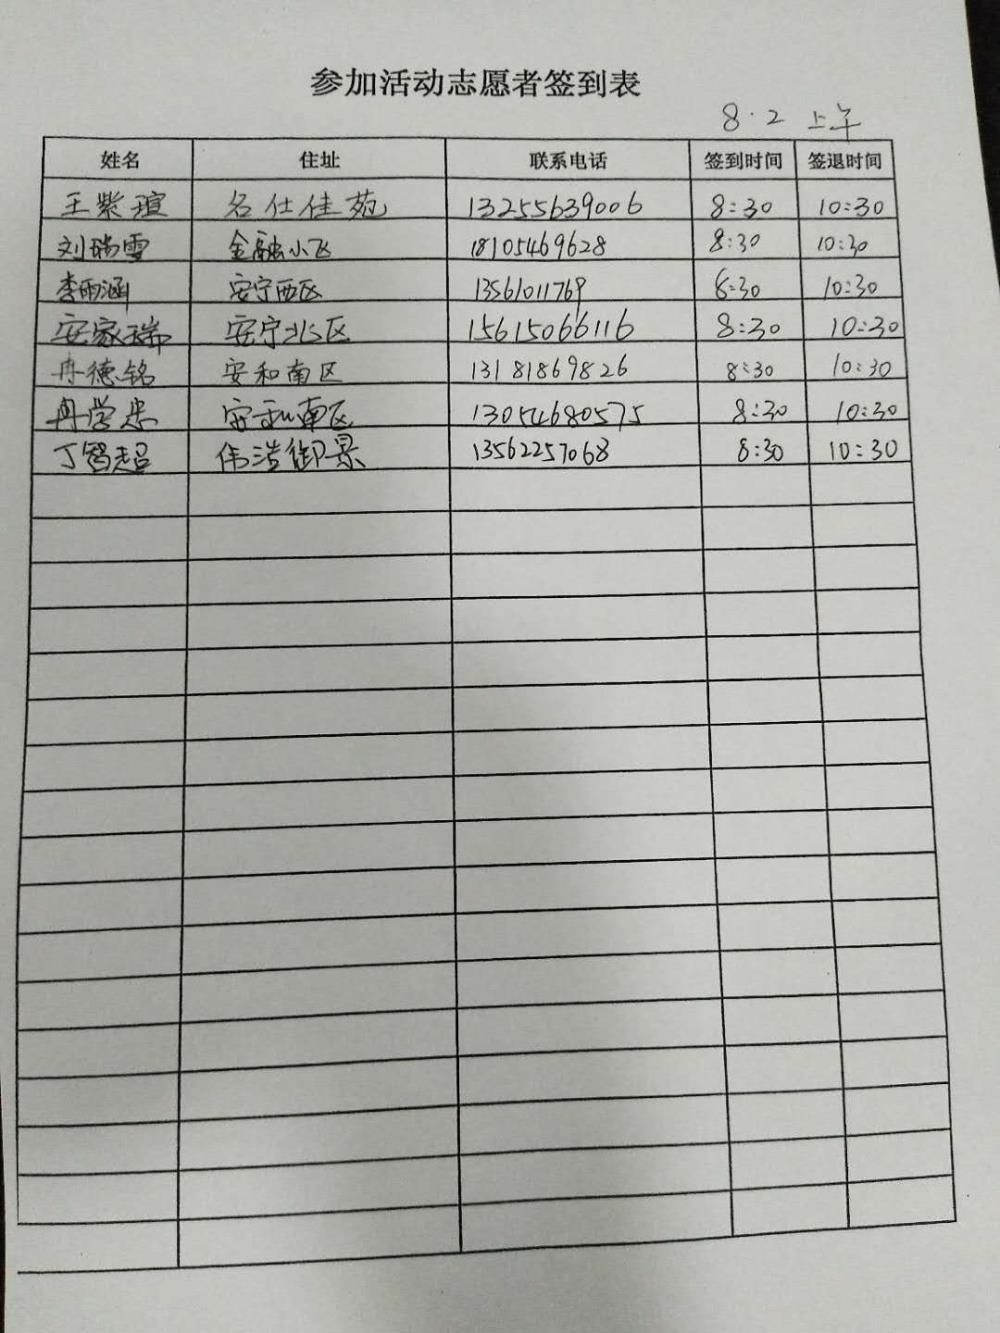 参加活动志愿者签到表
8.2 上午
姓名 住址 联系电话 签到时间 签退时间
王紫瑄 名仕佳苑 13255639006 8:30 10:30
刘瑞雪 金融小区 18105469628 8:30 10:30
李雨涵 安宁西区 13561011769 8:30 10:30
安家瑞 安宁北区 15615066116 8:30 10:30
冉德铭 安和南区 13181869826 8:30 10:30
冉学 安和南区 13054680575 8:30 10:30
丁智超 伟浩御景 13562257068 8:30 10:30